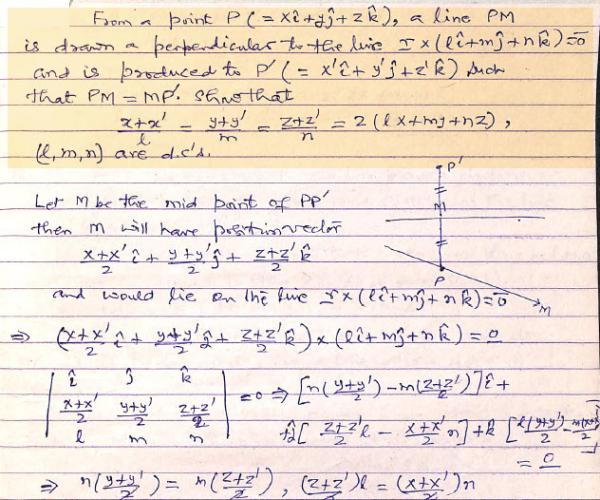 From a point P(= xî+yĵ+zk̂), a line PM
is drawn a perpendicular to the line r × (lî+mĵ+nk̂)=0̅
and is produced to P'(= x'î+y'ĵ+z'k̂) such
that PM = MP'. Show that
(x+x')/l = (y+y')/m = (z+z')/n = 2(lx+my+nz),
(l,m,n) are d.c's.
P'
Let M be the mid point of PP'
M
then M will have position vector
(x+x')/2 î + (y+y')/2 ĵ + (z+z')/2 k̂
P
and would lie on the line r × (lî+mĵ+nk̂)=0̅
M
⇒ ((x+x')/2 î + (y+y')/2 ĵ + (z+z')/2 k̂) × (lî+mĵ+nk̂) = 0
| î ĵ k̂ |
| (x+x')/2 (y+y')/2 (z+z')/2 | =0 ⇒ [n((y+y')/2) - m((z+z')/2)]î +
| l m n | +ĵ[(z+z')/2 l - (x+x')/2 n] + k̂[l(y+y')/2 - m(x+x')/2]
= 0
⇒ n((y+y')/2) = m((z+z')/2), ((z+z')/2)l = ((x+x')/2)n